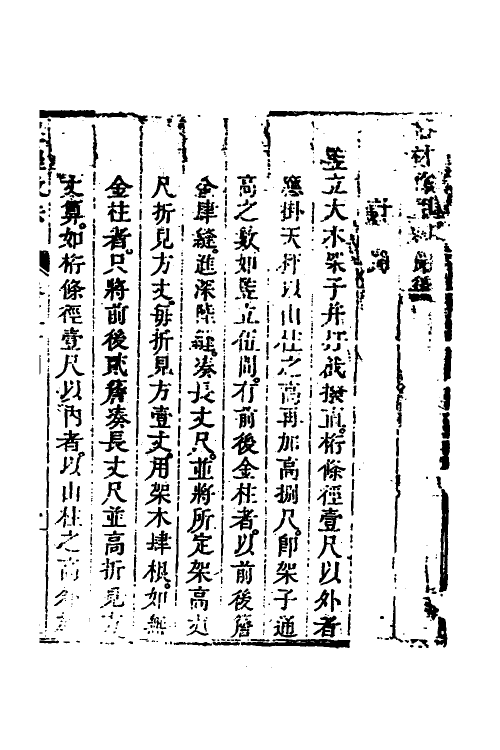 豎立大木架子并打戧撥直桁條徑壹尺以外者
應掛天秤以山柱之高再加高捌尺即架子通
高之數如豎立伍間有前後金柱者以前後簷
金肆縫進深陸縫湊長丈尺並將所定架高丈
尺折見方丈每折見方壹丈用架木肆根如無
金柱者只將前後貳簷湊長丈尺並高折見方
丈算如桁條徑壹尺以內者以山柱之高外